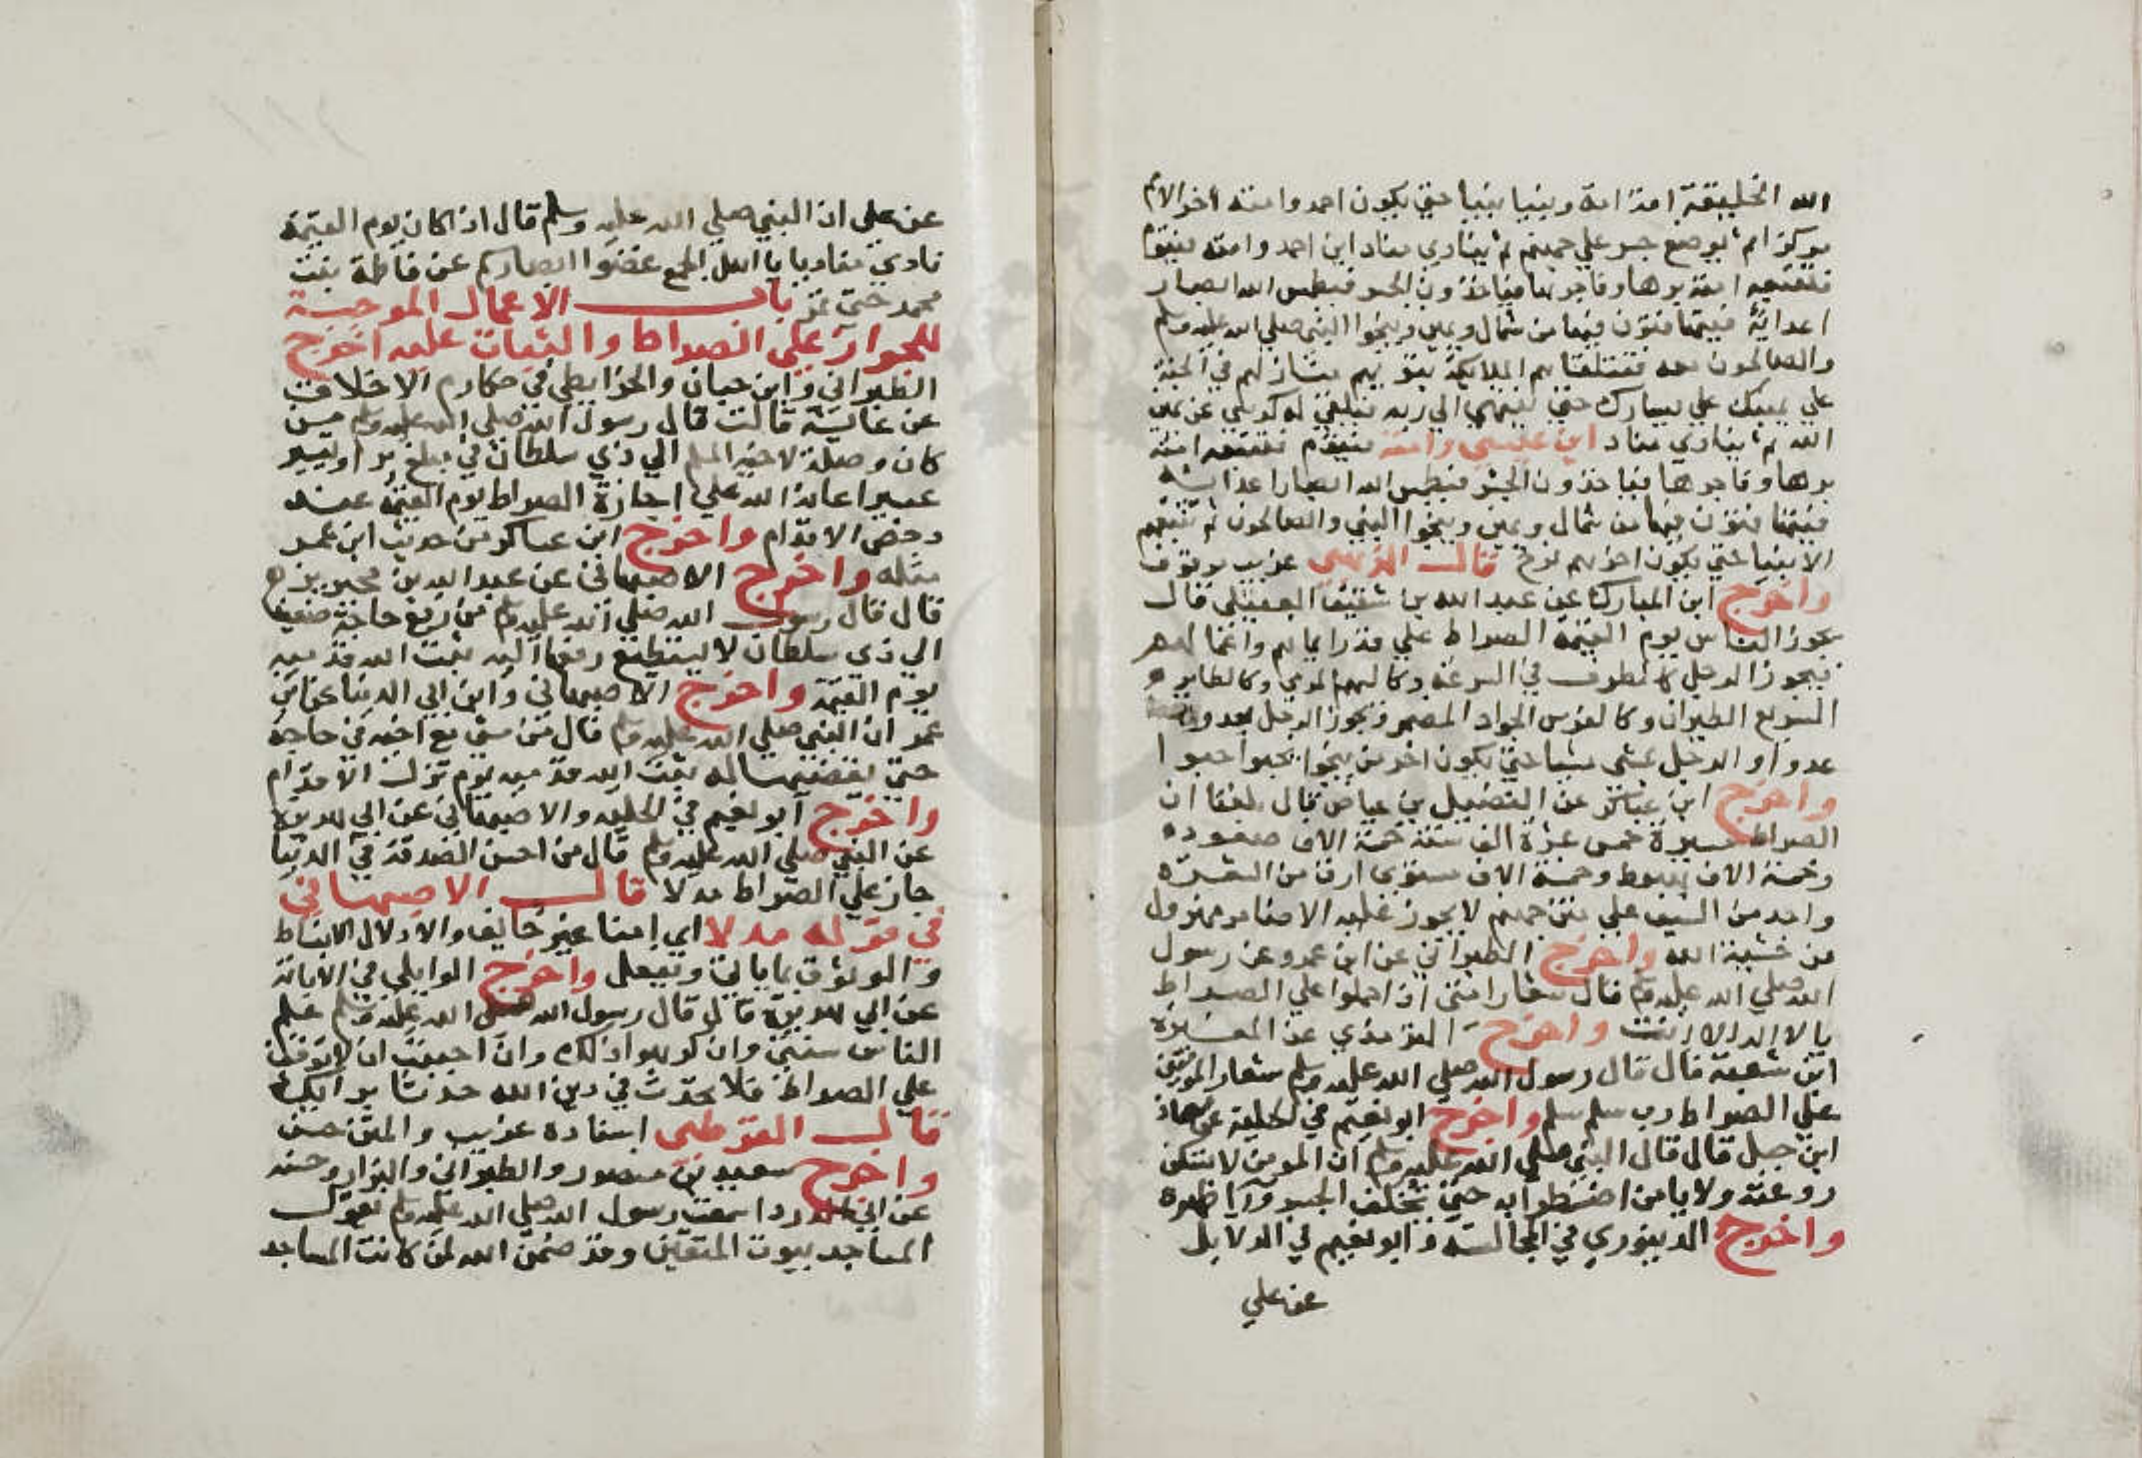 الله الخليقة امة امة ونبيا نبيا حتي يكون احمد وامته اخر الامم
مركزا ثم يوضع جسر علي جهنم ثم ينادي مناد اين احمد وامته فيقوم
فتتبعه امته برها وفاجرها فياخذون الجسر فيطمس الله ابصار
اعدائه فيتهافتون فيها من شمال ويمين وينجوا النبي صلي الله عليه وسلم
والصالحون معه فتتلقاهم الملايكة تبوؤهم منازلهم في الجنة
علي يمينك علي يسارك حتي ينتهي الي ربه فيلقي له كرسي عن يمين
الله ثم ينادي مناد اين عيسي وامته فيقوم فتتبعه امته
برها وفاجرها فياخذون الجسر فيطمس الله ابصار اعدائه
فيتهافتون فيها من شمال ويمين وينجوا النبي والصالحون ثم تتبعهم
الانبيا حتي يكون اخرهم نوح قال الذهبي غريب موقوف
واخرج ابن المبارك عن عبد الله بن شقيق العقيلي قال
يجوز الناس يوم القيمة الصراط علي قدر ايمانهم واعمالهم
فيجوز الرجل كالطرف في السرعة وكالسهم المرمي وكالطاير
السريع الطيران وكالفرس الجواد المضمر ويجوز الرجل يعدو
عدوا والرجل يمشي مشيا حتي يكون اخر من ينجوا يحبوا حبوا
واخرج ابن عساكر عن الفضيل بن عياض قال بلغنا ان
الصراط مسيرة خمس عشرة الف سنة خمسة الاف صعوده
وخمسة الاف هبوط وخمسة الاف مستوي ارق من الشعرة
واحد من السيف علي متن جهنم لا يجوز عليه الا ضامر مهزول
من خشية الله واخرج الطبراني عن ابن عمرو عن رسول
الله صلي الله عليه وسلم قال شعار امتي اذا حملوا علي الصراط
يا لا اله الا انت واخرج الترمذي عن المغيرة
ابن شعبة قال قال رسول الله صلي الله عليه وسلم شعار المومنين
علي الصراط رب سلم سلم واخرج ابو نعيم في الحلية عن معاذ
ابن جبل قال قال النبي صلي الله عليه وسلم ان المومن لا يسكن
روعته ولا يامن اضطرابه حتي يخلف الجسر ورا ظهره
واخرج الدينوري في المجالسة وابو نعيم في الدلايل
عن علي
عن علي ان النبي صلي الله عليه وسلم قال اذا كان يوم القيمة
نادي مناد يا يا اهل الجمع غضوا ابصاركم عن فاطمة بنت
محمد حتي تمر باب الاعمال الموجبة
للجواز علي الصراط والثبات عليه اخرج
الطبراني وابن حبان والخرايطي في مكارم الاخلاق
عن عايشة قالت قال رسول الله صلي الله عليه وسلم من
كان وصلة لاخيه المسلم الي ذي سلطان في مبلغ بر او تيسير
عسير اعانه الله علي اجازة الصراط يوم القيمة عند
دحض الاقدام واخرج ابن عساكر من حديث ابن عمر
مثله واخرج الاصبهاني عن عبد الله بن محيريز
قال قال رسول الله صلي الله عليه وسلم من رفع حاجة ضعيف
الي ذي سلطان لا يستطيع رفعها اليه ثبت الله قدميه
يوم القيمة واخرج الاصبهاني وابن ابي الدنيا عن ابن
عمر ان النبي صلي الله عليه وسلم قال من مشي مع اخيه في حاجة
حتي يقضيها له ثبت الله قدميه يوم تزل الاقدام
واخرج ابو نعيم في الحلية والاصبهاني عن ابي هريرة
عن النبي صلي الله عليه وسلم قال من احسن الصدقة في الدنيا
جاز علي الصراط مدلا قال الاصبهاني
في قوله مدلا اي امنا غير خايف والادلال الانبساط
والوثوق بما ياتي ويفعل واخرج الوايلي في الابانة
عن ابي هريرة قال قال رسول الله صلي الله عليه وسلم علم
الناس سنتي وان كرهوا ذلك وان احببت ان لا توقف
علي الصراط فلا تحدث في دين الله حدثا برايك
قال القرطبي اسناده غريب والمتن حسن
واخرج سعيد بن منصور والطبراني والبزار وحسنه
عن ابي الدردا سمعت رسول الله صلي الله عليه وسلم يقول
المساجد بيوت المتقين وقد ضمن الله لمن كانت المساجد